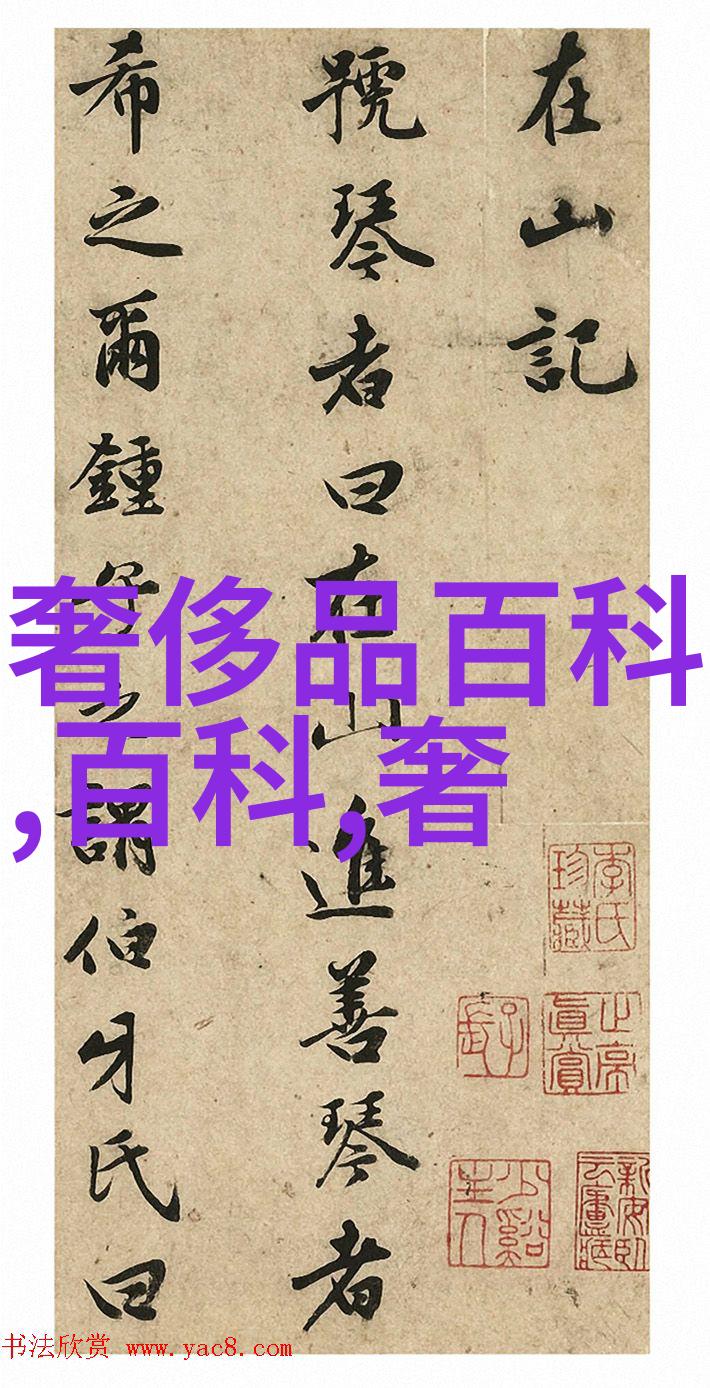 在山記
號琴者曰在山進善琴者
希之爾鍾子之謂伯牙氏曰
奢侈品百科
,百科,奢
少谿主人
书法欣赏 www.yac8.com